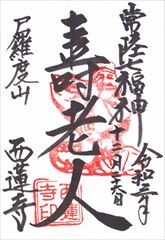 常陸七福神
令和二年
十二月
寿老人
尸羅度山
西蓮寺
西蓮
寺印